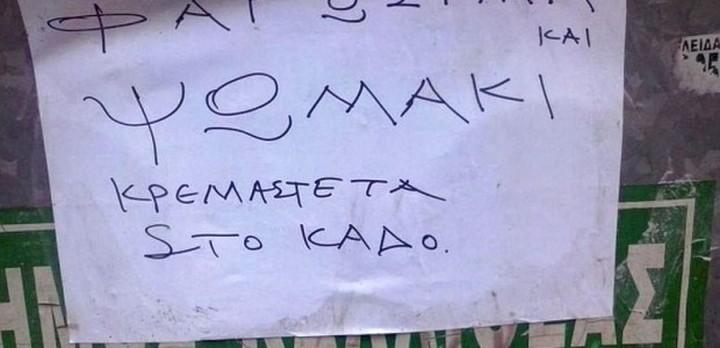 ΦΑΓΩΣΙΜΑ
ΚΑΙ
ΨΩΜΑΚΙ
ΚΡΕΜΑΣΤΕ ΤΑ
ΣΤΟ ΚΑΔΟ.
ΛΕΙΔΑ